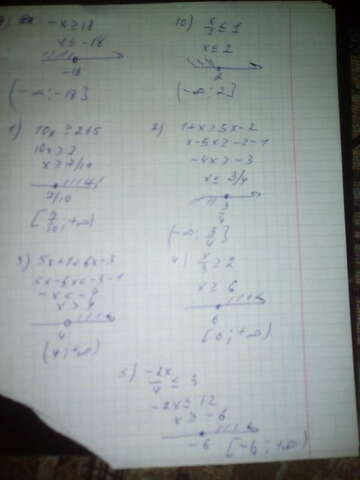 -x ≥ 18
x ≤ -18
-18
(-∞; -18]
10) x/2 ≤ 1
x ≤ 2
2
(-∞; 2]
1) 10x ≥ 2+5
10x ≥ 7
x ≥ 7/10
7/10
[7/10; +∞)
2) 1+x ≥ 5x-2
x-5x ≥ -2-1
-4x ≥ -3
x ≤ 3/4
3/4
(-∞; 3/4]
3) 5x+1 < 6x-3
5x-6x < -3-1
-x < -4
x > 4
4
(4; +∞)
4) x/3 ≥ 2
x ≥ 6
6
[6; +∞)
5) -2x/4 ≤ 3
x ≥ -6
-6 [-6; +∞)